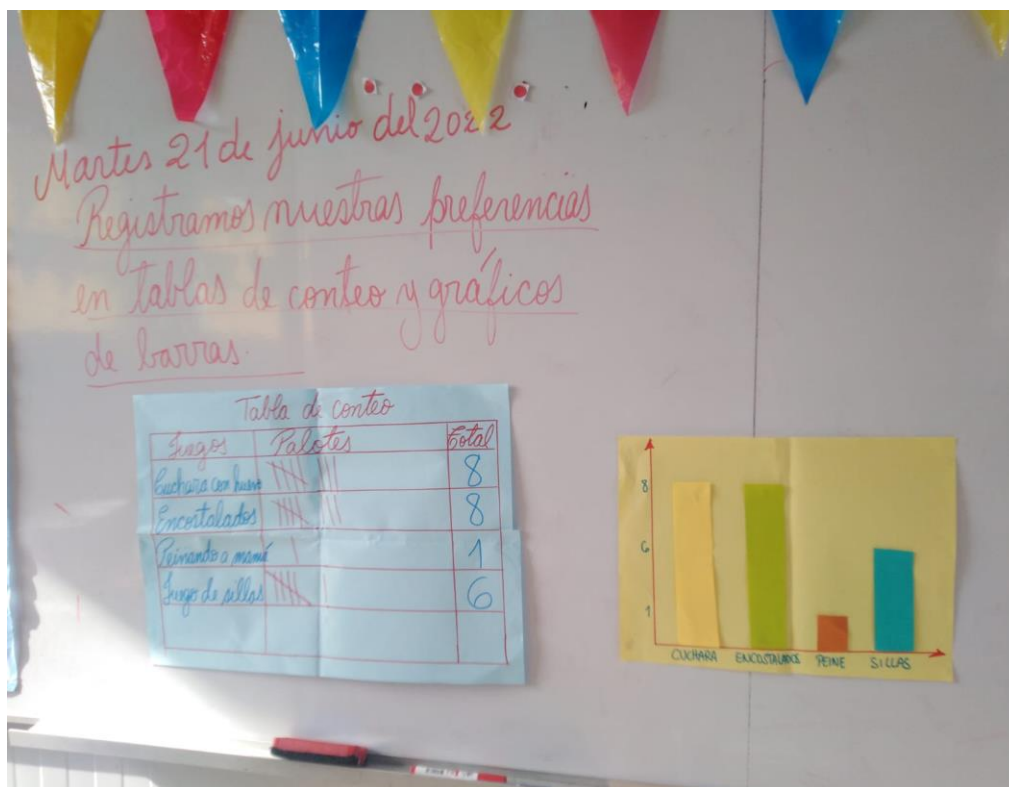 Martes 21 de junio del 2022
Registramos nuestras preferencias
en tablas de conteo y gráficos
de barras.
Tabla de conteo
Juegos Palotes Total
Cuchara con huevo 8
Encostalados 8
Peinando a mamá 1
Juego de sillas 6
8
6
1
CUCHARA ENCOSTALADOS PEINE SILLAS